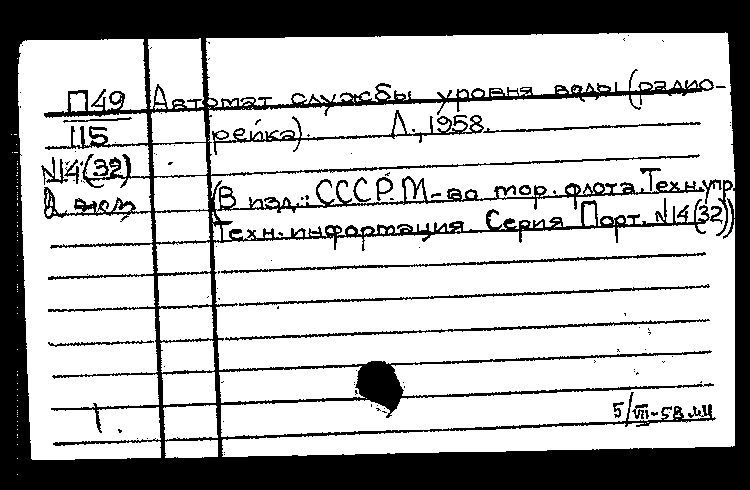 П49 Автомат службы уровня воды (радио-
115 рейка). Л., 1958.
N14(32)
2 экз (В изд.: СССР. М-во мор. флота. Техн. упр.
Техн. информация. Серия Порт. N14(32))
1.
5/VII-58